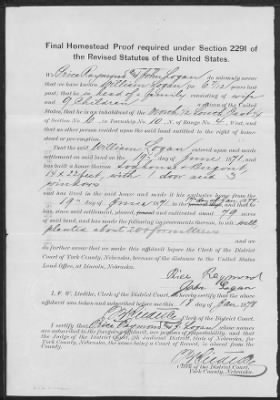 Final Homestead Proof required under Section 2291 of
the Revised Statutes of the United States.
We Price Raymond & John Logan do solemnly swear
that we have known William Logan for 6 1/2 years last
past; that he is head of a family consisting of wife
and 9 Children a citizen of the United
States; that he is an inhabitant of the North 1/2 of
of Section No. 6 in Township No. 10 N. of Range No. 4 West, and
that no other person resided upon the said land entitled to the right of
That the said William Logan entered upon and made
settlement on said land on the 19th day of June 1871, and
has built a house thereon
14 x 22 feet, with 1 door and 3
windows
and has lived in the said house and made it his exclusive home from the
19th day of June 1871
has, since said settlement, plowed and cultivated about 79 acres
of said land, and has made the following improvements thereon, to wit: well
planted about 2000 forest trees
and
do further swear that we make this affidavit before the Clerk of the District
Court of York County, Nebraska, because of the distance to the United States
Land Office, at Lincoln, Nebraska.
Price Raymond
John Logan
I, F. W. Liedtke, Clerk of the District Court, do hereby certify that the above
affidavit was taken and subscribed before me this day of Jan 1879
F W Liedtke
Clerk of the District Court.
I certify that Price Raymond & J. Logan whose names
are subscribed to the foregoing affidavit, are persons of respectability, and that
the Judge of the District Court, Judicial District, State of Nebraska, for
York County, the same being a Court of Record, is absent from the
County.
F W Liedtke
Clerk of the District Court,
York County, Nebraska.